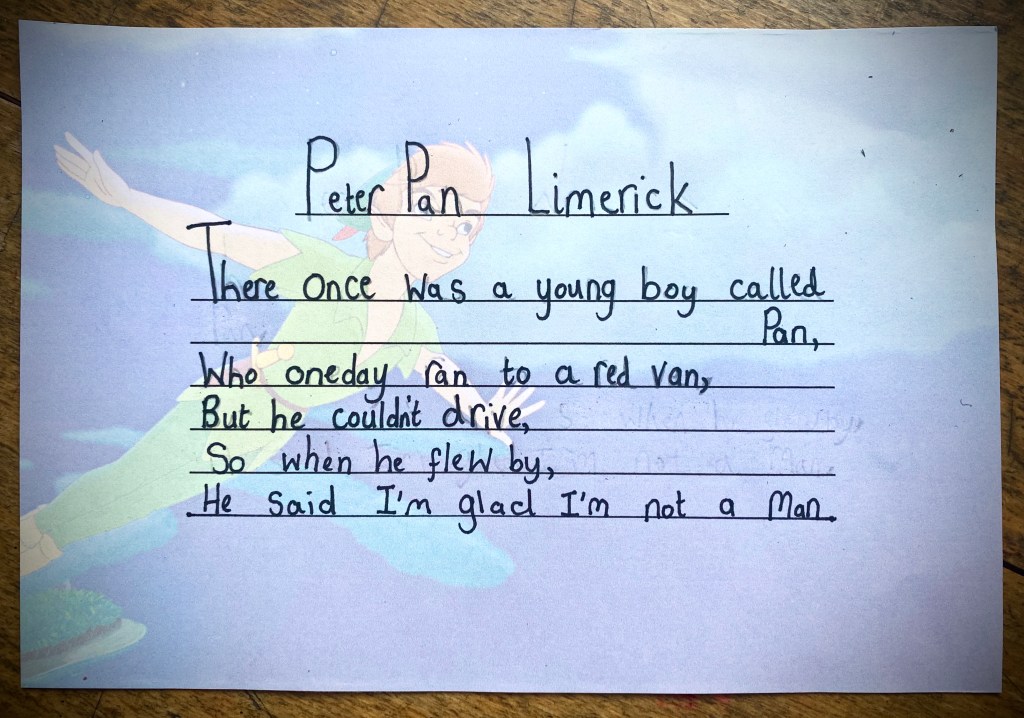 Peter Pan Limerick
There once was a young boy called
Pan,
Who oneday ran to a red van,
But he couldn't drive,
So when he flew by,
He said I'm glad I'm not a man.